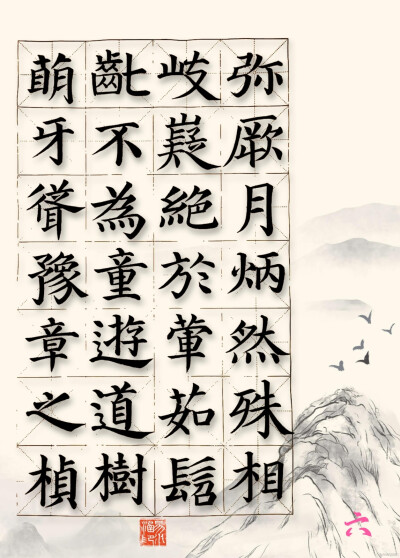 弥厥月炳然殊相
岐嶷絶於葷茹髫
齔不為童遊道樹
萌牙聳豫章之楨
六